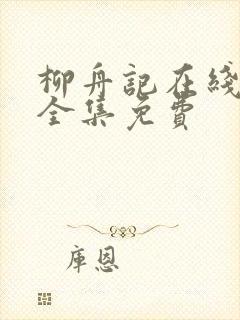 柳舟記在綫
全集免費
庫恩